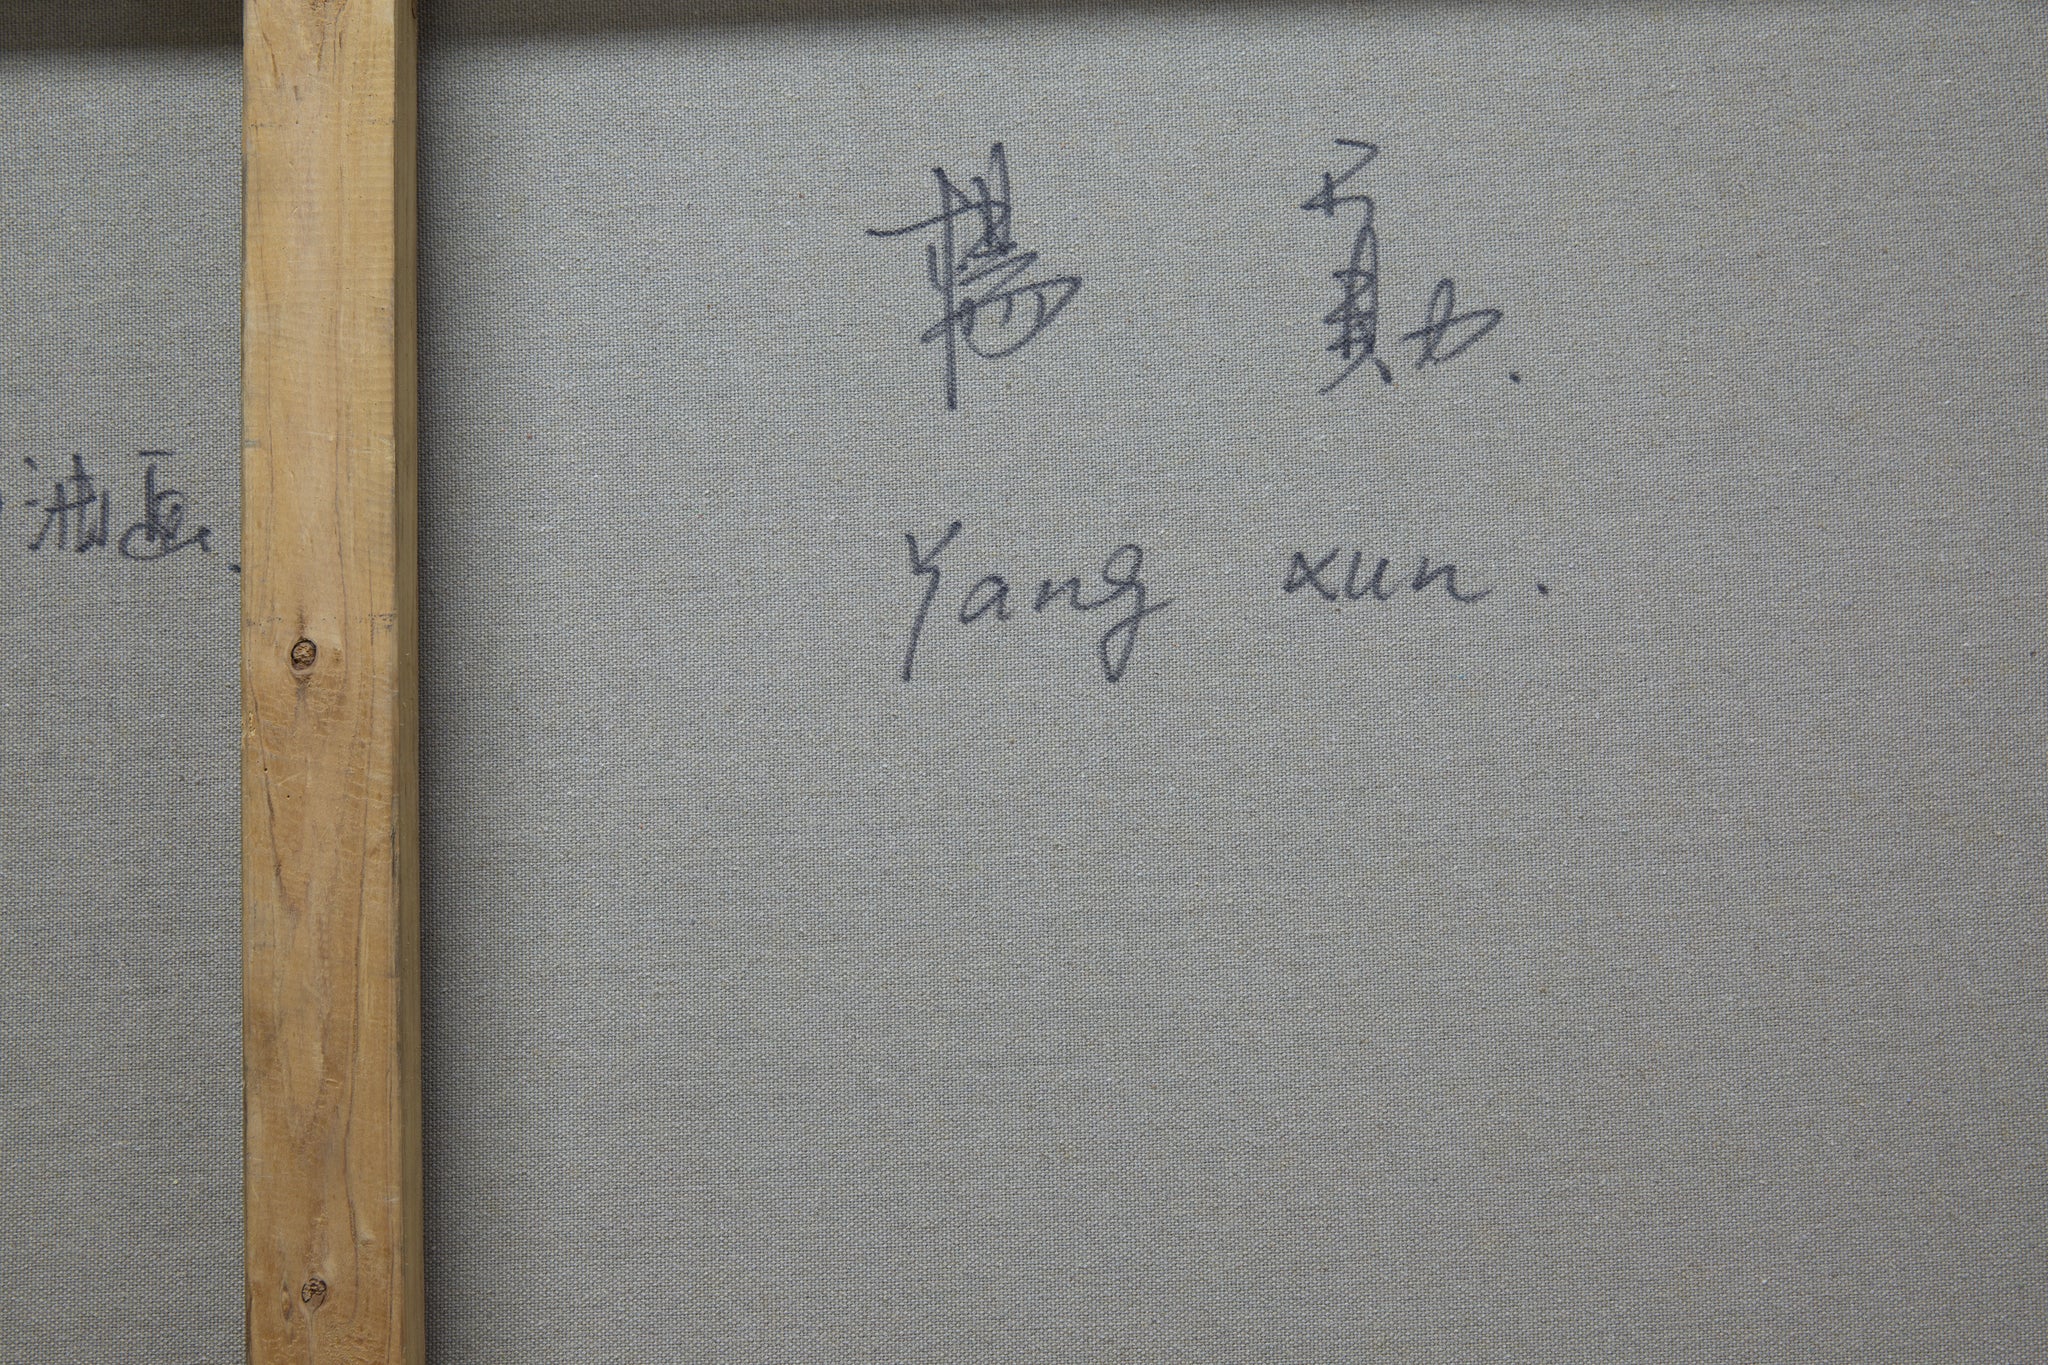 楊 勛.
油画.
Yang xun.